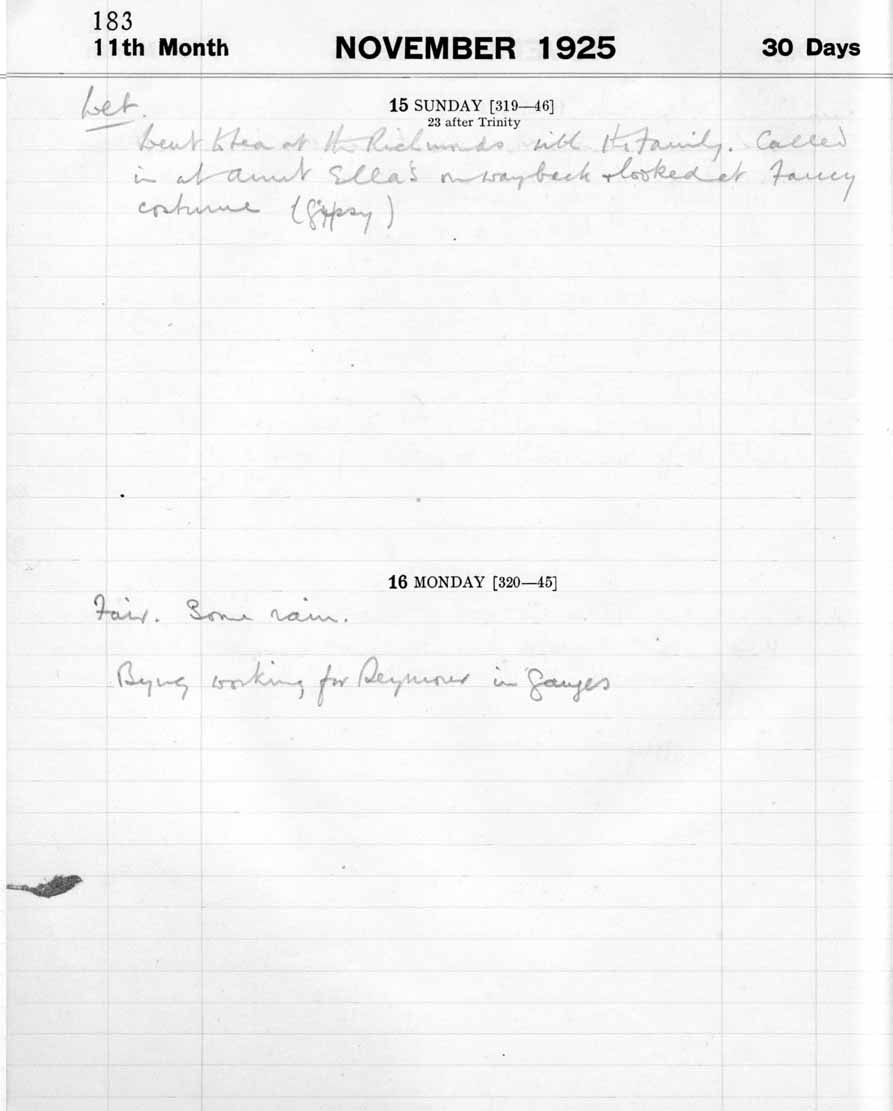 183
11th Month NOVEMBER 1925 30 Days
15 SUNDAY [319—46]
23 after Trinity
Wet.
Went to tea at the Richmonds with the Family. Called
in at Aunt Ella's on way back & looked at Fancy
costume (Gypsy)
16 MONDAY [320—45]
Fair. Some rain.
Byng working for Seymour in Ganges